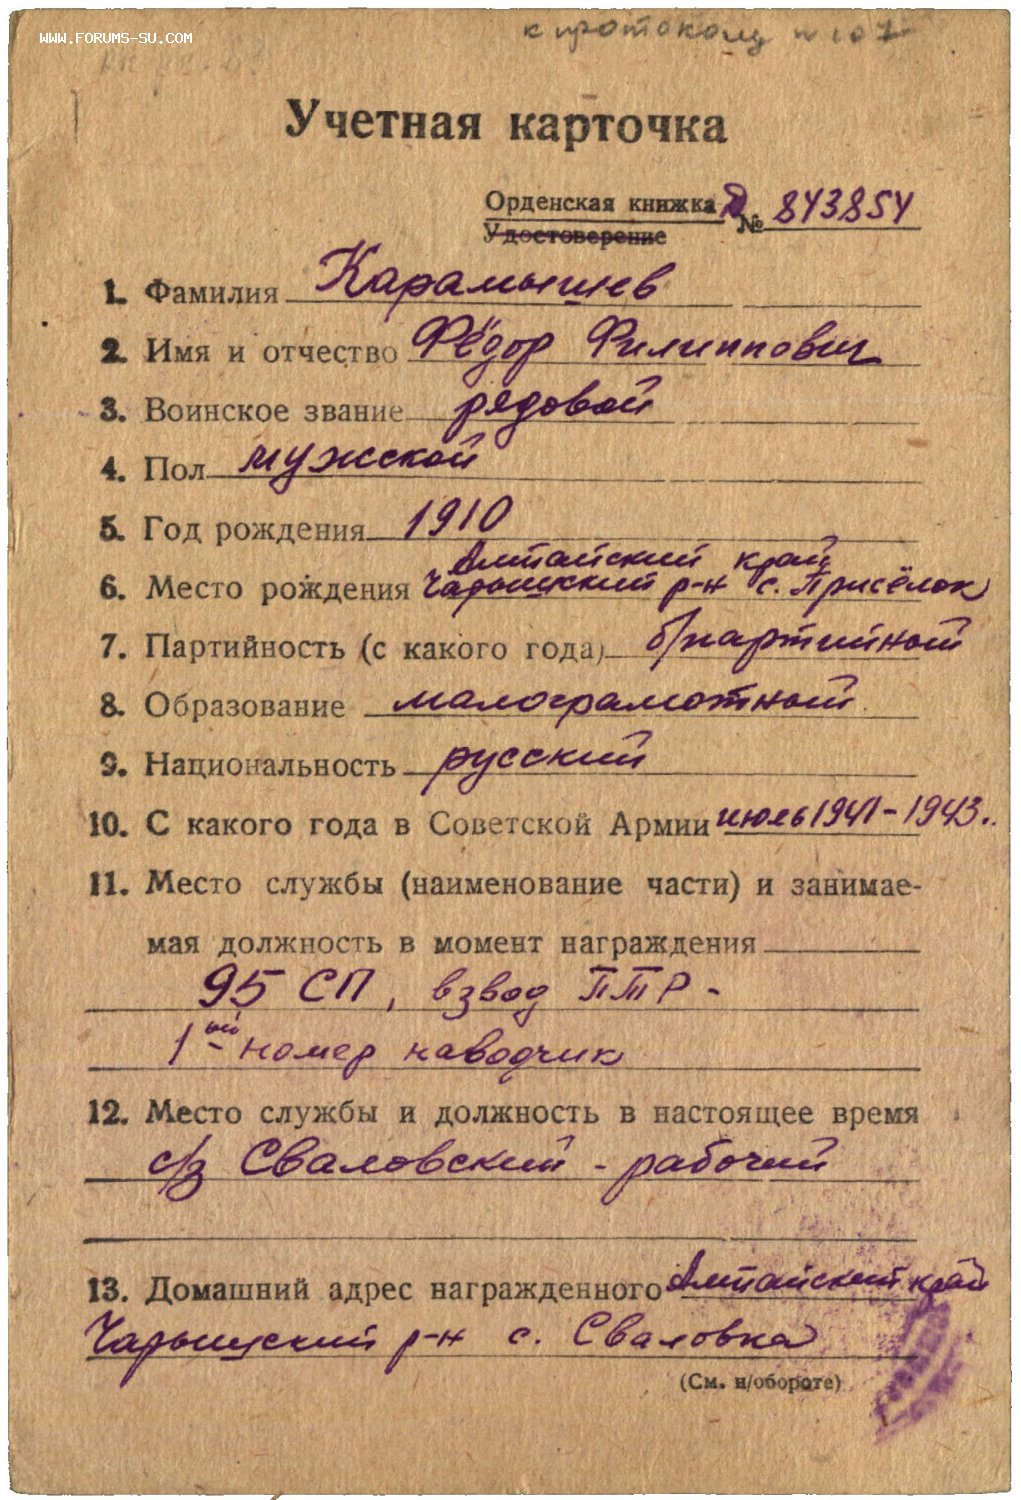 WWW.FORUMS-SU.COM
к протоколу № 107
Учетная карточка
Орденская книжка Д № 843854
Удостоверение
1. Фамилия Карамышев
2. Имя и отчество Фёдор Филиппович
3. Воинское звание рядовой
4. Пол мужской
5. Год рождения 1910
Алтайский край
6. Место рождения Чарышский р-н с. Присёлок
7. Партийность (с какого года) б/партийный
8. Образование малограмотный
9. Национальность русский
10. С какого года в Советской Армии июль 1941-1943.
11. Место службы (наименование части) и занимае-
мая должность в момент награждения
95 СП, взвод ПТР -
1ый - номер наводчик
12. Место службы и должность в настоящее время
с/з Сваловский - рабочий
13. Домашний адрес награжденного Алтайский край
Чарышский р-н с. Сваловка
(См. н/обороте)